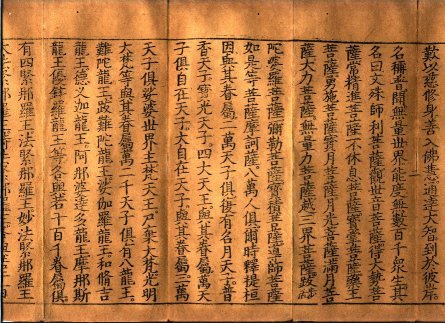 歎以慈修身善入佛慧通達大智到於彼岸
名稱普聞無量世界能度無數百千衆生其
名曰文殊師利菩薩觀世音菩薩得大勢菩
薩常精進菩薩不休息菩薩寶掌菩薩藥王
菩薩勇施菩薩寶月菩薩月光菩薩滿月菩
薩大力菩薩無量力菩薩越三界菩薩跋
陀婆羅菩薩彌勒菩薩寶積菩薩導師菩薩
如是等菩薩摩訶薩八萬人俱爾時釋提桓
因與其眷屬二萬天子俱復有名月天子普
香天子寶光天子四大天王與其眷屬萬天
子俱自在天子大自在天子與其眷屬三萬
天子俱娑婆世界主梵天王尸棄大梵光明
大梵等與其眷屬萬二千天子俱有八龍王
難陀龍王跋難陀龍王娑伽羅龍王和脩吉
龍王德叉迦龍王阿那婆達多龍王摩那斯
龍王優鉢羅龍王等各與若干百千眷屬俱
有四緊那羅王法緊那羅王妙法緊那羅王